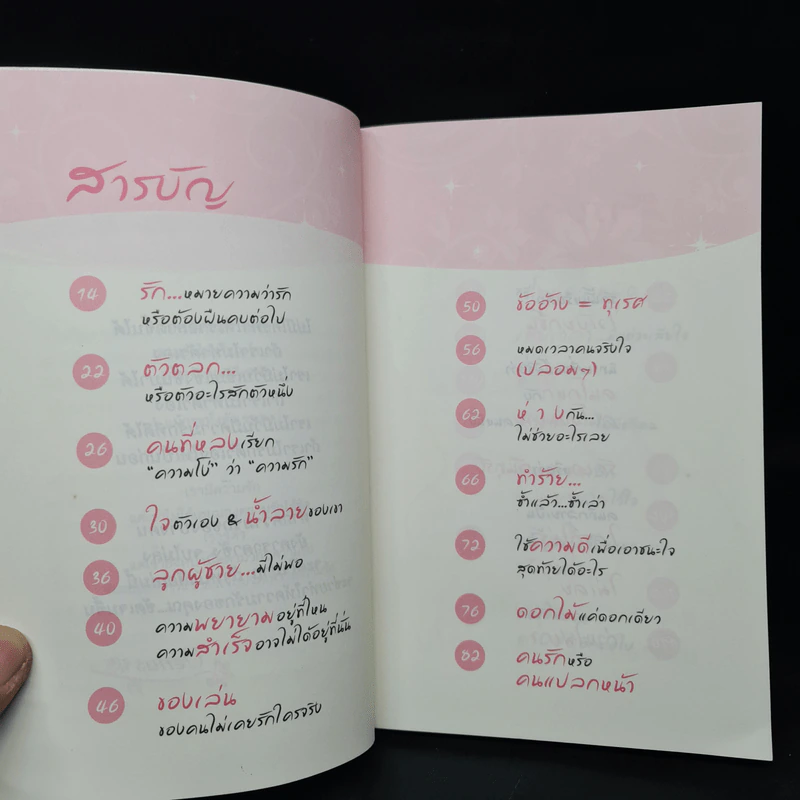 สารบัญ
14 รัก...หมายความว่ารัก
หรือต้องฝืนคบต่อไป
22 ตัวตลก...
หรือตัวอะไรสักตัวหนึ่ง
26 คนที่หลงเรียก
"ความโง่" ว่า "ความรัก"
30 ใจตัวเอง & น้ำลายของเขา
36 ลูกผู้ชาย...มีไม่พอ
40 ความพยายามอยู่ที่ไหน
ความสำเร็จอาจไม่ได้อยู่ที่นั่น
46 ของเล่น
ของคนไม่เคยรักใครจริง
50 ข้ออ้าง = ทุเรศ
56 หมดเวลาคนจริงใจ
(ปลอมๆ)
62 ห่ า งกัน...
ไม่ช่วยอะไรเลย
66 ทำร้าย...
ซ้ำแล้ว...ซ้ำเล่า
72 ใช้ความดีเพื่อเอาชนะใจ
สุดท้ายได้อะไร
76 ดอกไม้แค่ดอกเดียว
82 คนรักหรือ
คนแปลกหน้า